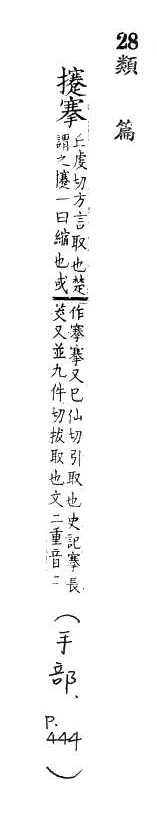 28 類篇
攓搴
丘虔切方言取也楚
謂之攓一曰縮也或
作搴搴又巳仙切引取也史記搴長
茭又並九件切拔取也文二重音二
(手部.
P.
444)